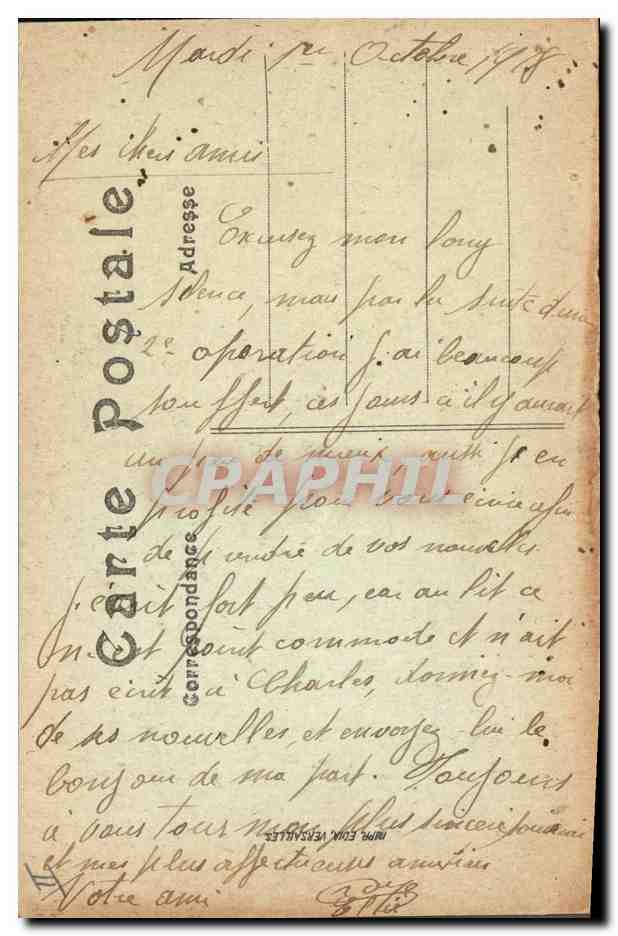 Mardi 1er Octobre 1918
Mes chers amis
Excusez mon long
silence, mais par la suite d'une
2e opération j'ai beaucoup
souffert, ces jours-ci il y aurait
un peu de mieux, aussi j'en
profite pour vous écrire afin
de prendre de vos nouvelles
j'écrit fort peu, car au lit ce
n'est point commode et n'ait
pas écrit à Charles, donnez-moi
de ses nouvelles, et envoyez-lui le
bonjour de ma part. Toujours
à vous tous mon plus sincère souvenir
et mes plus affectueuses amitiés
Votre ami
II
Carte Postale
Correspondance
Adresse
IMPR. EDIA, VERSAILLES
CPAPHIL